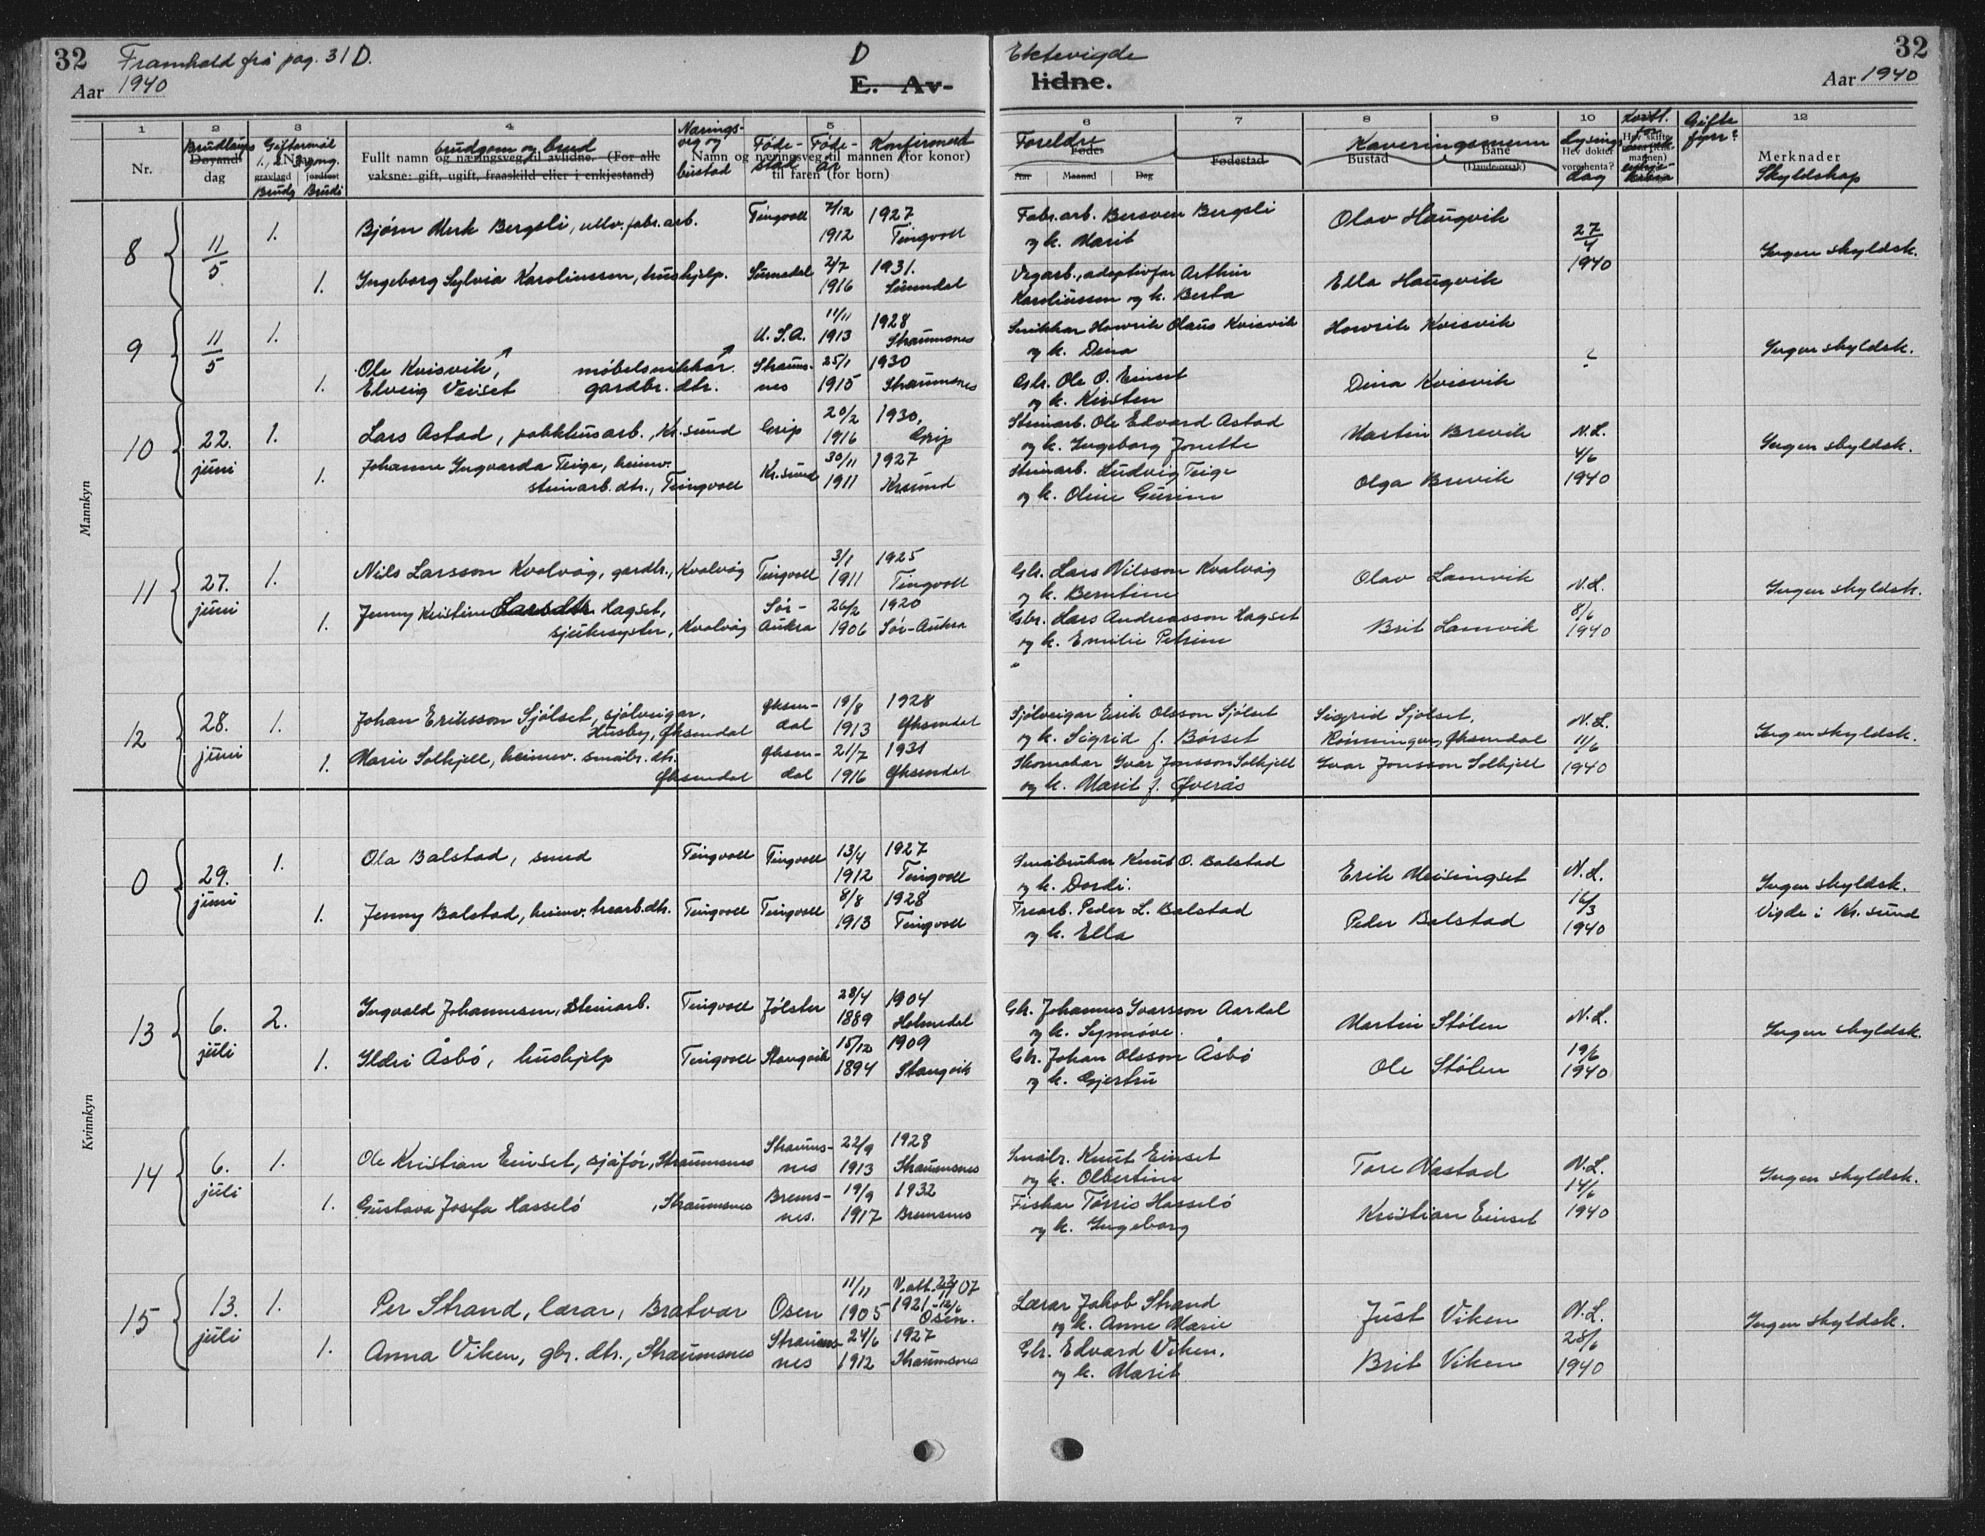 32 Framhald frå pag. 31 D. D Ektevigde 32
Aar 1940 E. Av- lidne. Aar 1940
1 2 3 4 5 6 7 8 9 10 12
Nr. Brudlaups dag Giftermål Brudg Brudi
brudgom og brud
Fullt namn og næringsveg til avlidne. (For alle
vaksne: gift, ugift, fraaskild eller i enkjestand)
Nærings- veg og bustad Føde- stad Føde- år Konfirmert
Namn og næringsveg til mannen (for konor)
til faren (for born)
Foreldre Fødestad
Kaveringsmenn Bustad
Lysings dag
Gifte før?
Merknader
Skyldskap
Mannkyn
8 11/5 1. Bjørn Merk Bergsli, ullv. fabr. arb. Tingvoll 7/12 1927 Fabr. arb. Bersven Bergsli Olav Haugvik 27/4
1912 Tingvoll og k. Marit Ingen skyldsk.
1. Ingeborg Sylvia Karoliussen, hushjelp. Surnadal 2/7 1931. Vegarb., adoptivfar Arthur Ella Haugvik 1940
1916 Surnadal Karoliussen og k. Berta
9 11/5 1. 11/11 1928 Snikkar Henrik Olaus Kvisvik Henrik Kvisvik
U.S.A. 1913 Straumsnes og k. Dina Ingen skyldsk.
Ole Kvisvik, møbelsnikkar. Straums- 25/1 1930 Gbr. Ole O. Einset
1. Elveig Veiset gardbr. dtr. nes 1915 Straumsnes og k. Kirsten Dina Kvisvik
10 22. juni 1. Lars Astad, pakkhusarb., Kr.sund Grip 20/2 1930, Steinarb. Ole Edvard Astad Martin Brevik N.L.
1916 Grip og k. Ingeborg Jonette Ingen skyldsk.
1. Johanne Ingvarda Teige, heimv. Kr.sund 30/11 1927 Steinarb. Ludvig Teige Olga Brevik 4/6
steinarb. dtr., Tingvoll 1911 Kr.sund og k. Oline Gurine 1940
11 27. juni 1. Nils Larsson Kvalvåg, gardbr., Kvalvåg Tingvoll 3/1 1925 Gbr. Lars Nilsson Kvalvåg Olav Lamvik N.L.
1911 Tingvoll og k. Berntine Ingen skyldsk.
1. Jenny Kristine Larsdtr. Hagset, Sør- 26/2 1920 Gbr. Lars Andreasson Hagset Brit Lamvik 8/6
sjukesyster, Kvalvåg Aukra 1906 Sør-Aukra og k. Emilie Petrine 1940
12 28. juni 1. Johan Eriksson Sjølset, sjølveigar, Øksen- 19/8 1928 Sjølveigar Erik Olsson Sjølset Sigrid Sjølset, N.L.
Husby, Øksendal dal 1913 Øksendal og k. Sigrid f. Børset Rønningen, Øksendal 11/6 Ingen skyldsk.
1. Marie Solhjell, heimv. småbr. dtr. Øksen- 21/7 1931 Skomakar Ivar Jonsson Solhjell Ivar Jonsson Solhjell 1940
Øksendal dal 1916 Øksendal og k. Marit f. Øverås
Kvinnkyn
0 29. juni 1. Ola Balstad, smed Tingvoll Tingvoll 13/4 1927 Småbrukar Knut O. Balstad Erik Meisingset N.L.
1912 Tingvoll og k. Dordi. Ingen skyldsk.
1. Jenny Balstad, heimv. trearb. dtr. Tingvoll Tingvoll 8/8 1928 Trearb. Peder L. Balstad Peder Balstad 16/3 Vigde i Kr.sund
1913 Tingvoll og k. Ella 1940
13 6. juli 2. Ingvald Johannesen, steinarb. Tingvoll Jølster 28/4 1904 Gbr. Johannes Ivarsson Aardal Martin Stølen N.L.
1889 Holmedal og k. Synnøve. Ingen skyldsk.
1. Ildri Åsbø, hushjelp Tingvoll Stangvik 15/12 1909 Gbr. Johan Olsson Åsbø Ole Stølen 19/6
1894 Stangvik og k. Gjertru 1940
14 6. juli 1. Ole Kristian Einset, sjåfør, Straumsnes Straums- 22/9 1928 Småbr. Knut Einset Tore Nastad N.L.
nes 1913 Straumsnes og k. Olbertine Ingen skyldsk.
1. Gustava Josefa Hasselø, Straumsnes Brems- 19/9 1932 Fiskar Tørris Hasselø Kristian Einset 14/6
nes. 1917 Bremsnes og k. Ingeborg 1940
15 13. juli 1. Per Strand, lærar, Bratvær Osen 11/11 V.att. 22/11 07 Lærar Jakob Strand Just Viken N.L.
1905 1921 -12/6 Osen. og k. Anne Marie Ingen skyldsk.
1. Anna Viken, gbr. dtr., Straumsnes Straums- 24/6 1927 Gbr. Edvard Viken, Brit Viken 28/6
nes 1912 Straumsnes og k. Marit 1940